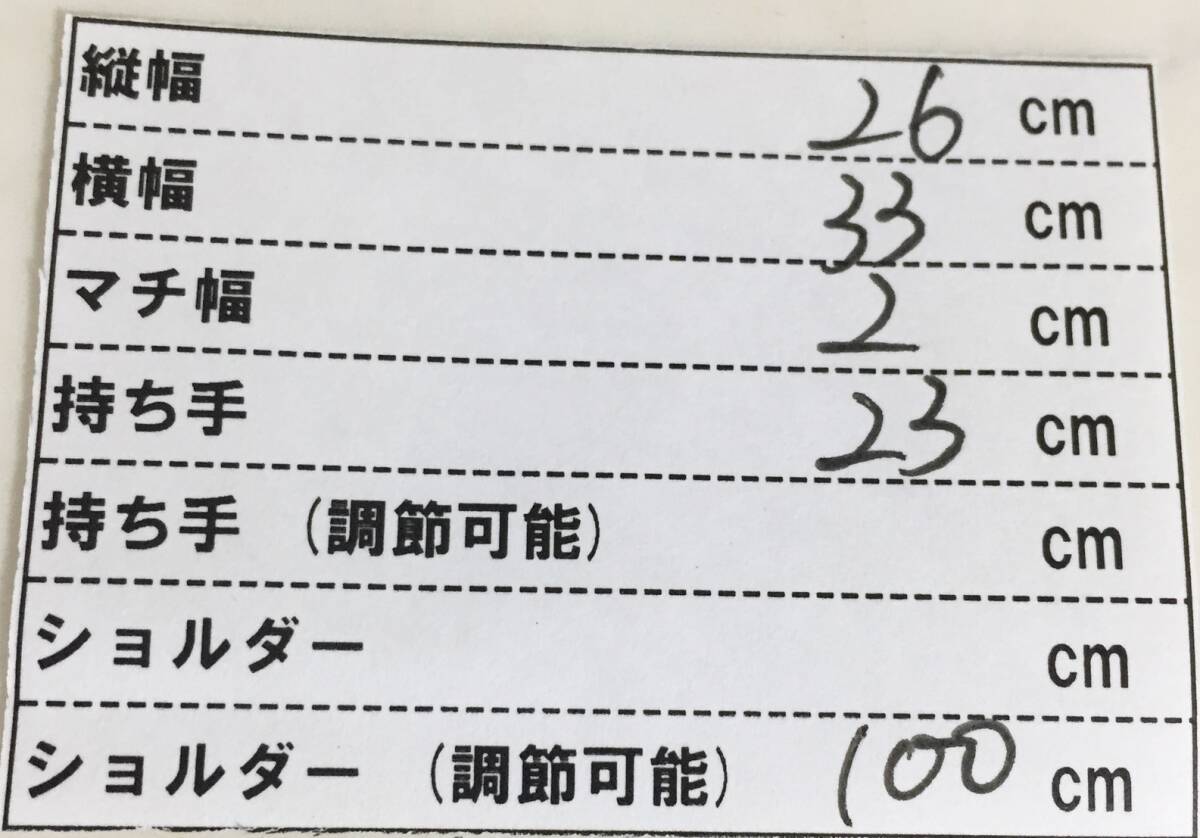 縦幅 26 cm
横幅 33 cm
マチ幅 2 cm
持ち手 23 cm
持ち手 (調節可能) cm
ショルダー cm
ショルダー (調節可能) 100 cm